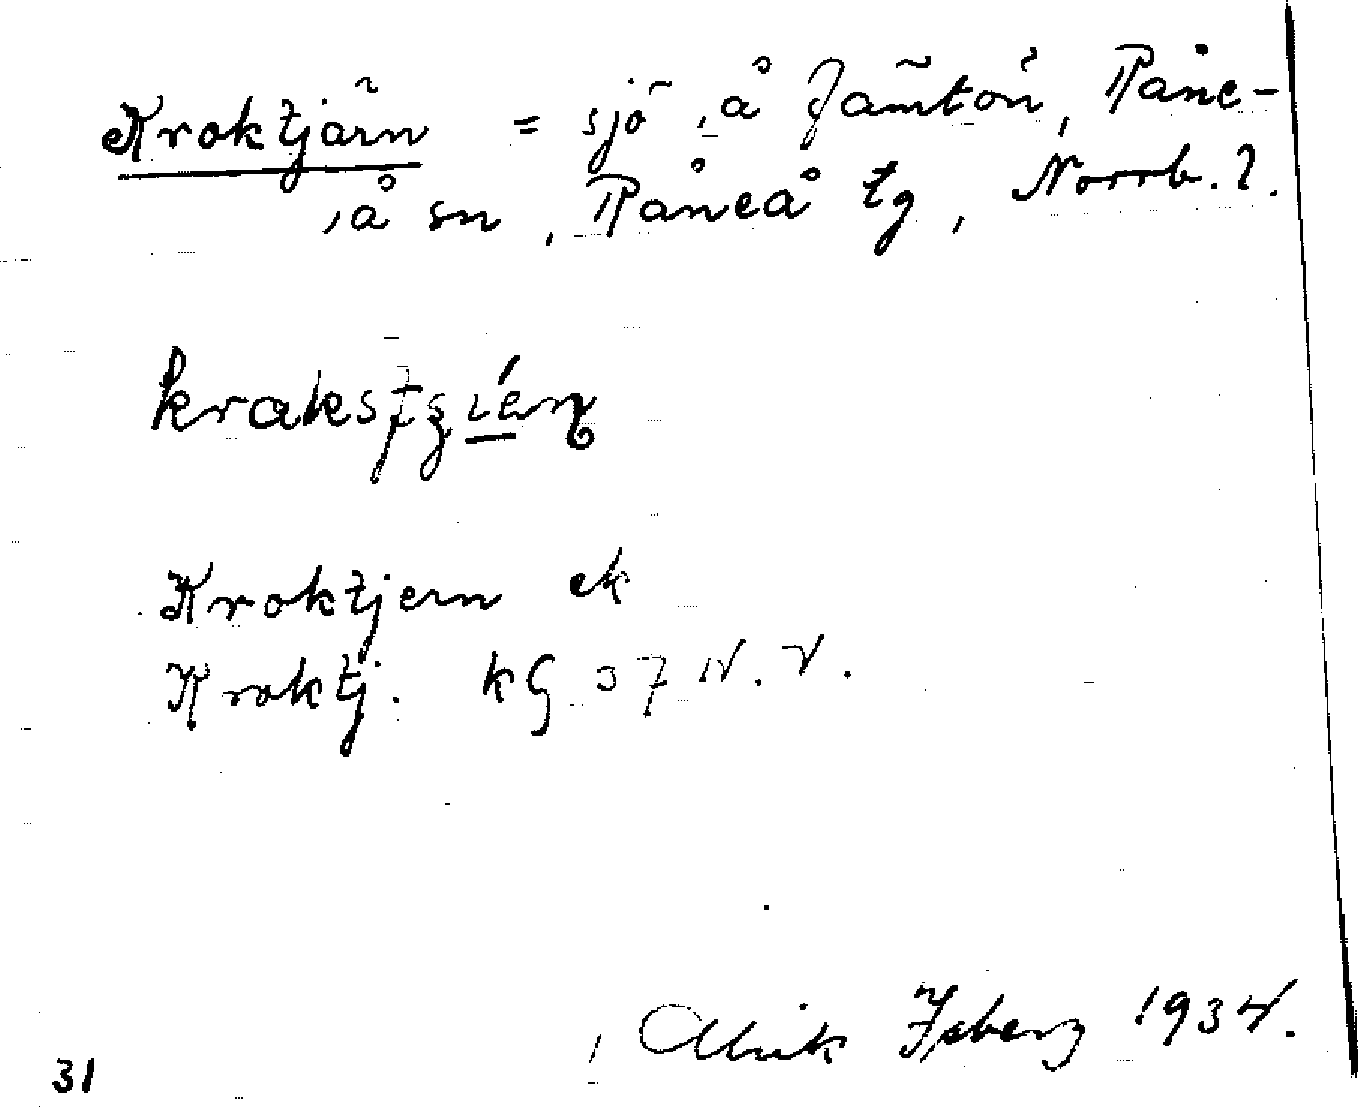 Kroktjärn = sjö, å Jämtön, Råne-
å sn, Råneå tg, Norrb. l.
Kroktjern ek
Kroktj. kG 37 N.V.
Ulrik Isberg 1934.
31